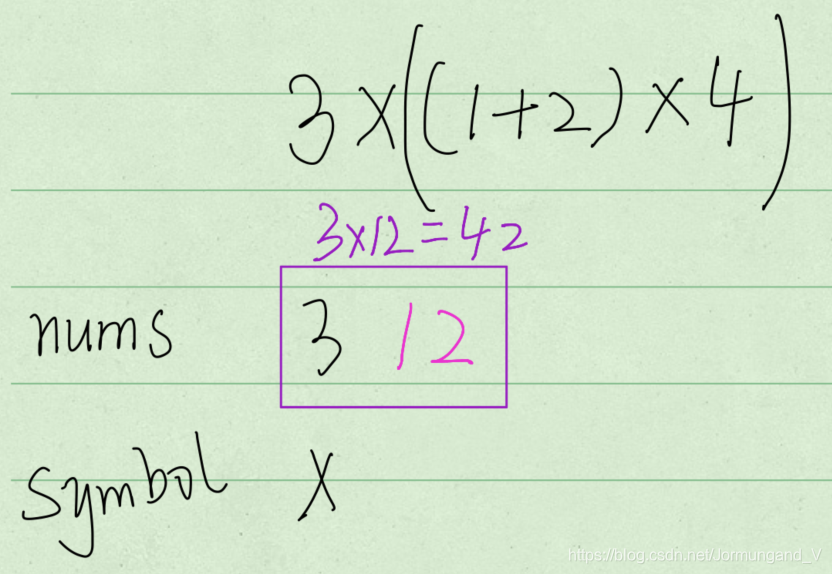 3×((1+2)×4)
3×12=42
nums 3 12
symbol ×
https://blog.csdn.net/Jormungand_V